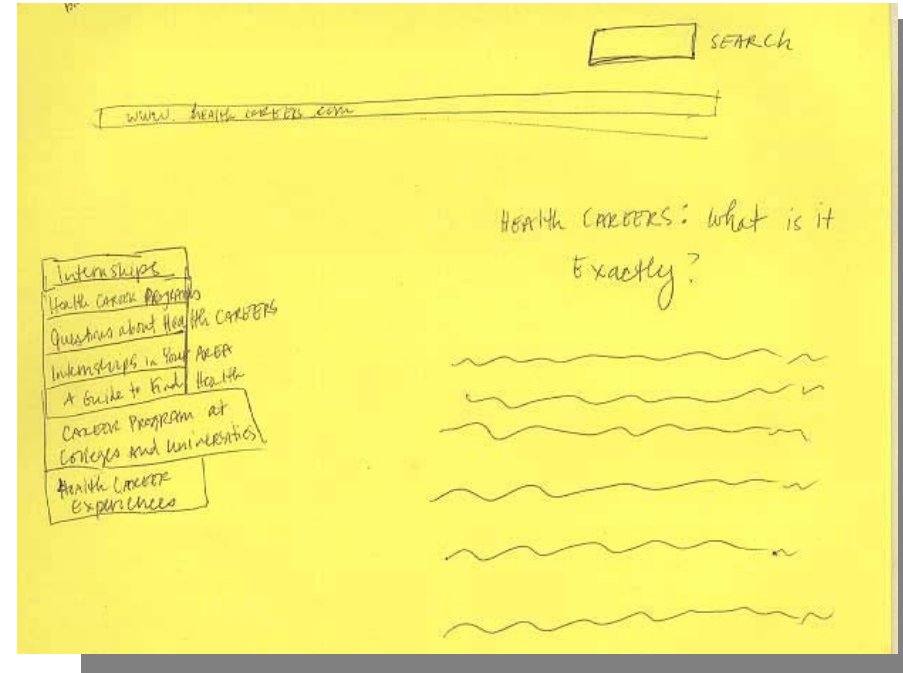 SEARCH
www. health careers .com
HEALTH CAREERS: What is it
Exactly?
Internships
Health Career Programs
Questions about Health CAREERS
Internships in Your AREA
A Guide to Find Health
CAREER PROGRAM at
Colleges and Universities
Health CAREER
Experiences